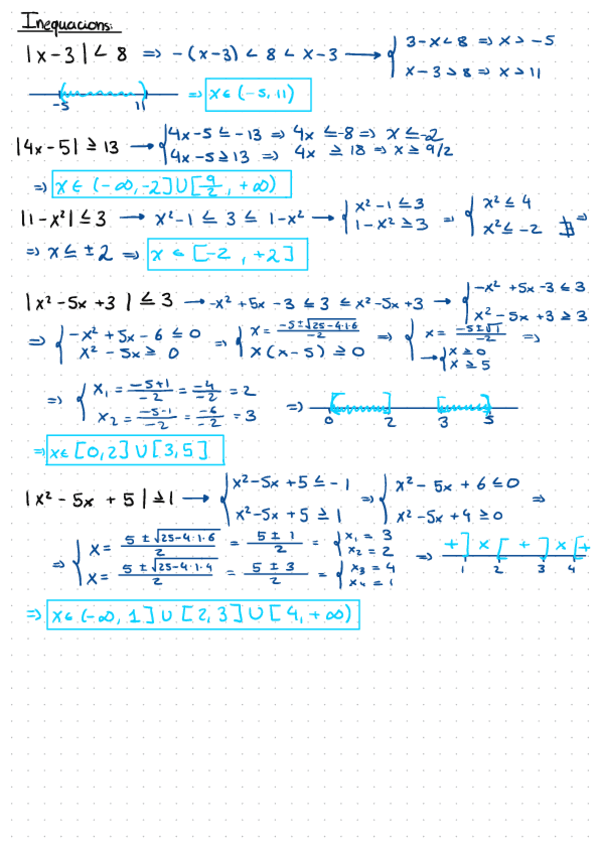 Inequacions:
|x-3| < 8 ⇒ -(x-3) < 8 < x-3 → { 3-x < 8 ⇒ x > -5
x-3 > 8 ⇒ x > 11
-5 11 ⇒ x ∈ (-5, 11)
|4x-5| ≥ 13 → { 4x-5 ≤ -13 ⇒ 4x ≤ -8 ⇒ x ≤ -2
4x-5 ≥ 13 ⇒ 4x ≥ 18 ⇒ x ≥ 9/2
⇒ x ∈ (-∞, -2] ∪ [9/2, +∞)
|1-x²| ≤ 3 → x²-1 ≤ 3 ≤ 1-x² → { x²-1 ≤ 3 ⇒ { x² ≤ 4
1-x² ≥ 3 x² ≤ -2 ∄ ⇒
⇒ x ≤ ±2 ⇒ x ∈ [-2, +2]
|x²-5x+3| ≤ 3 → -x²+5x-3 ≤ 3 ≤ x²-5x+3 → { -x²+5x-3 ≤ 3
x²-5x+3 ≥ 3
⇒ { -x²+5x-6 ≤ 0 ⇒ { x = (-5±√(25-4·1·6))/-2 ⇒ { x = (-5±√1)/-2 ⇒
x²-5x ≥ 0 x(x-5) ≥ 0 → { x ≥ 0
x ≥ 5
⇒ { x₁ = (-5+1)/-2 = -4/-2 = 2
x₂ = (-5-1)/-2 = -6/-2 = 3 ⇒ 0 2 3 5
⇒ x ∈ [0,2] ∪ [3,5]
|x²-5x+5| ≥ 1 → { x²-5x+5 ≤ -1 ⇒ { x²-5x+6 ≤ 0 ⇒
x²-5x+5 ≥ 1 x²-5x+4 ≥ 0
⇒ { x = (5±√(25-4·1·6))/2 = (5±1)/2 = { x₁ = 3
x₂ = 2
x = (5±√(25-4·1·4))/2 = (5±3)/2 = { x₃ = 4
x₄ = 1
⇒ + ] × [ + ] × [ +
1 2 3 4
⇒ x ∈ (-∞, 1] ∪ [2,3] ∪ [4, +∞)